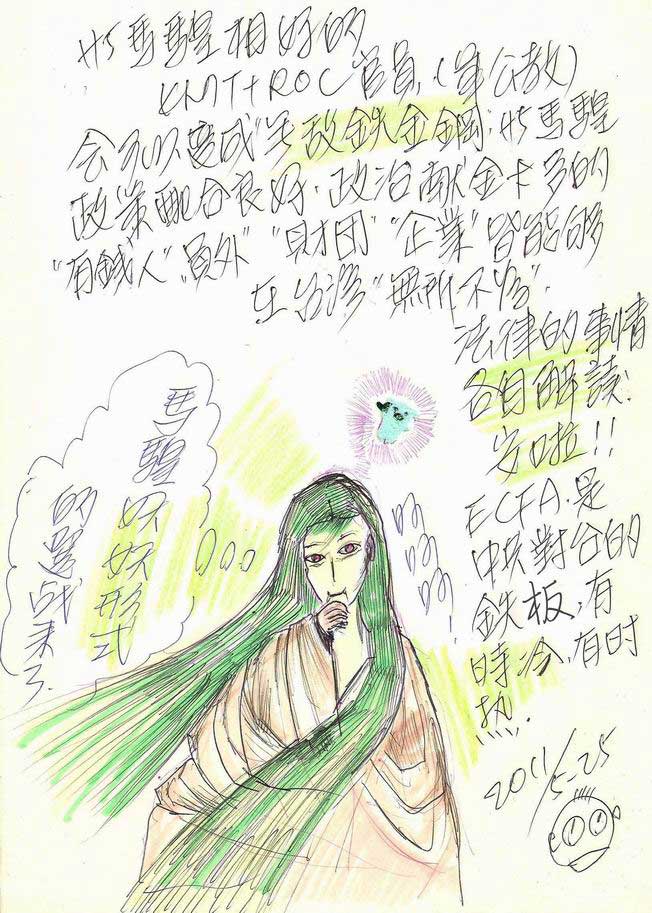 馬騜相好的
KMT+ROC官員,(軍公教)
会可以变成"无敵鉄金鋼",馬騜
政策配合良好.政治献金卡多的
"有錢人""員外""財団""企業"皆能够
在台湾"無所不為".
法律的事情
各自解読.
安啦!!
ECFA.是
中共對台的
鉄板,有
時冷,有时
热.
馬騜妖妖形式
的選战来了.
呵呵呵!
2011/5-25